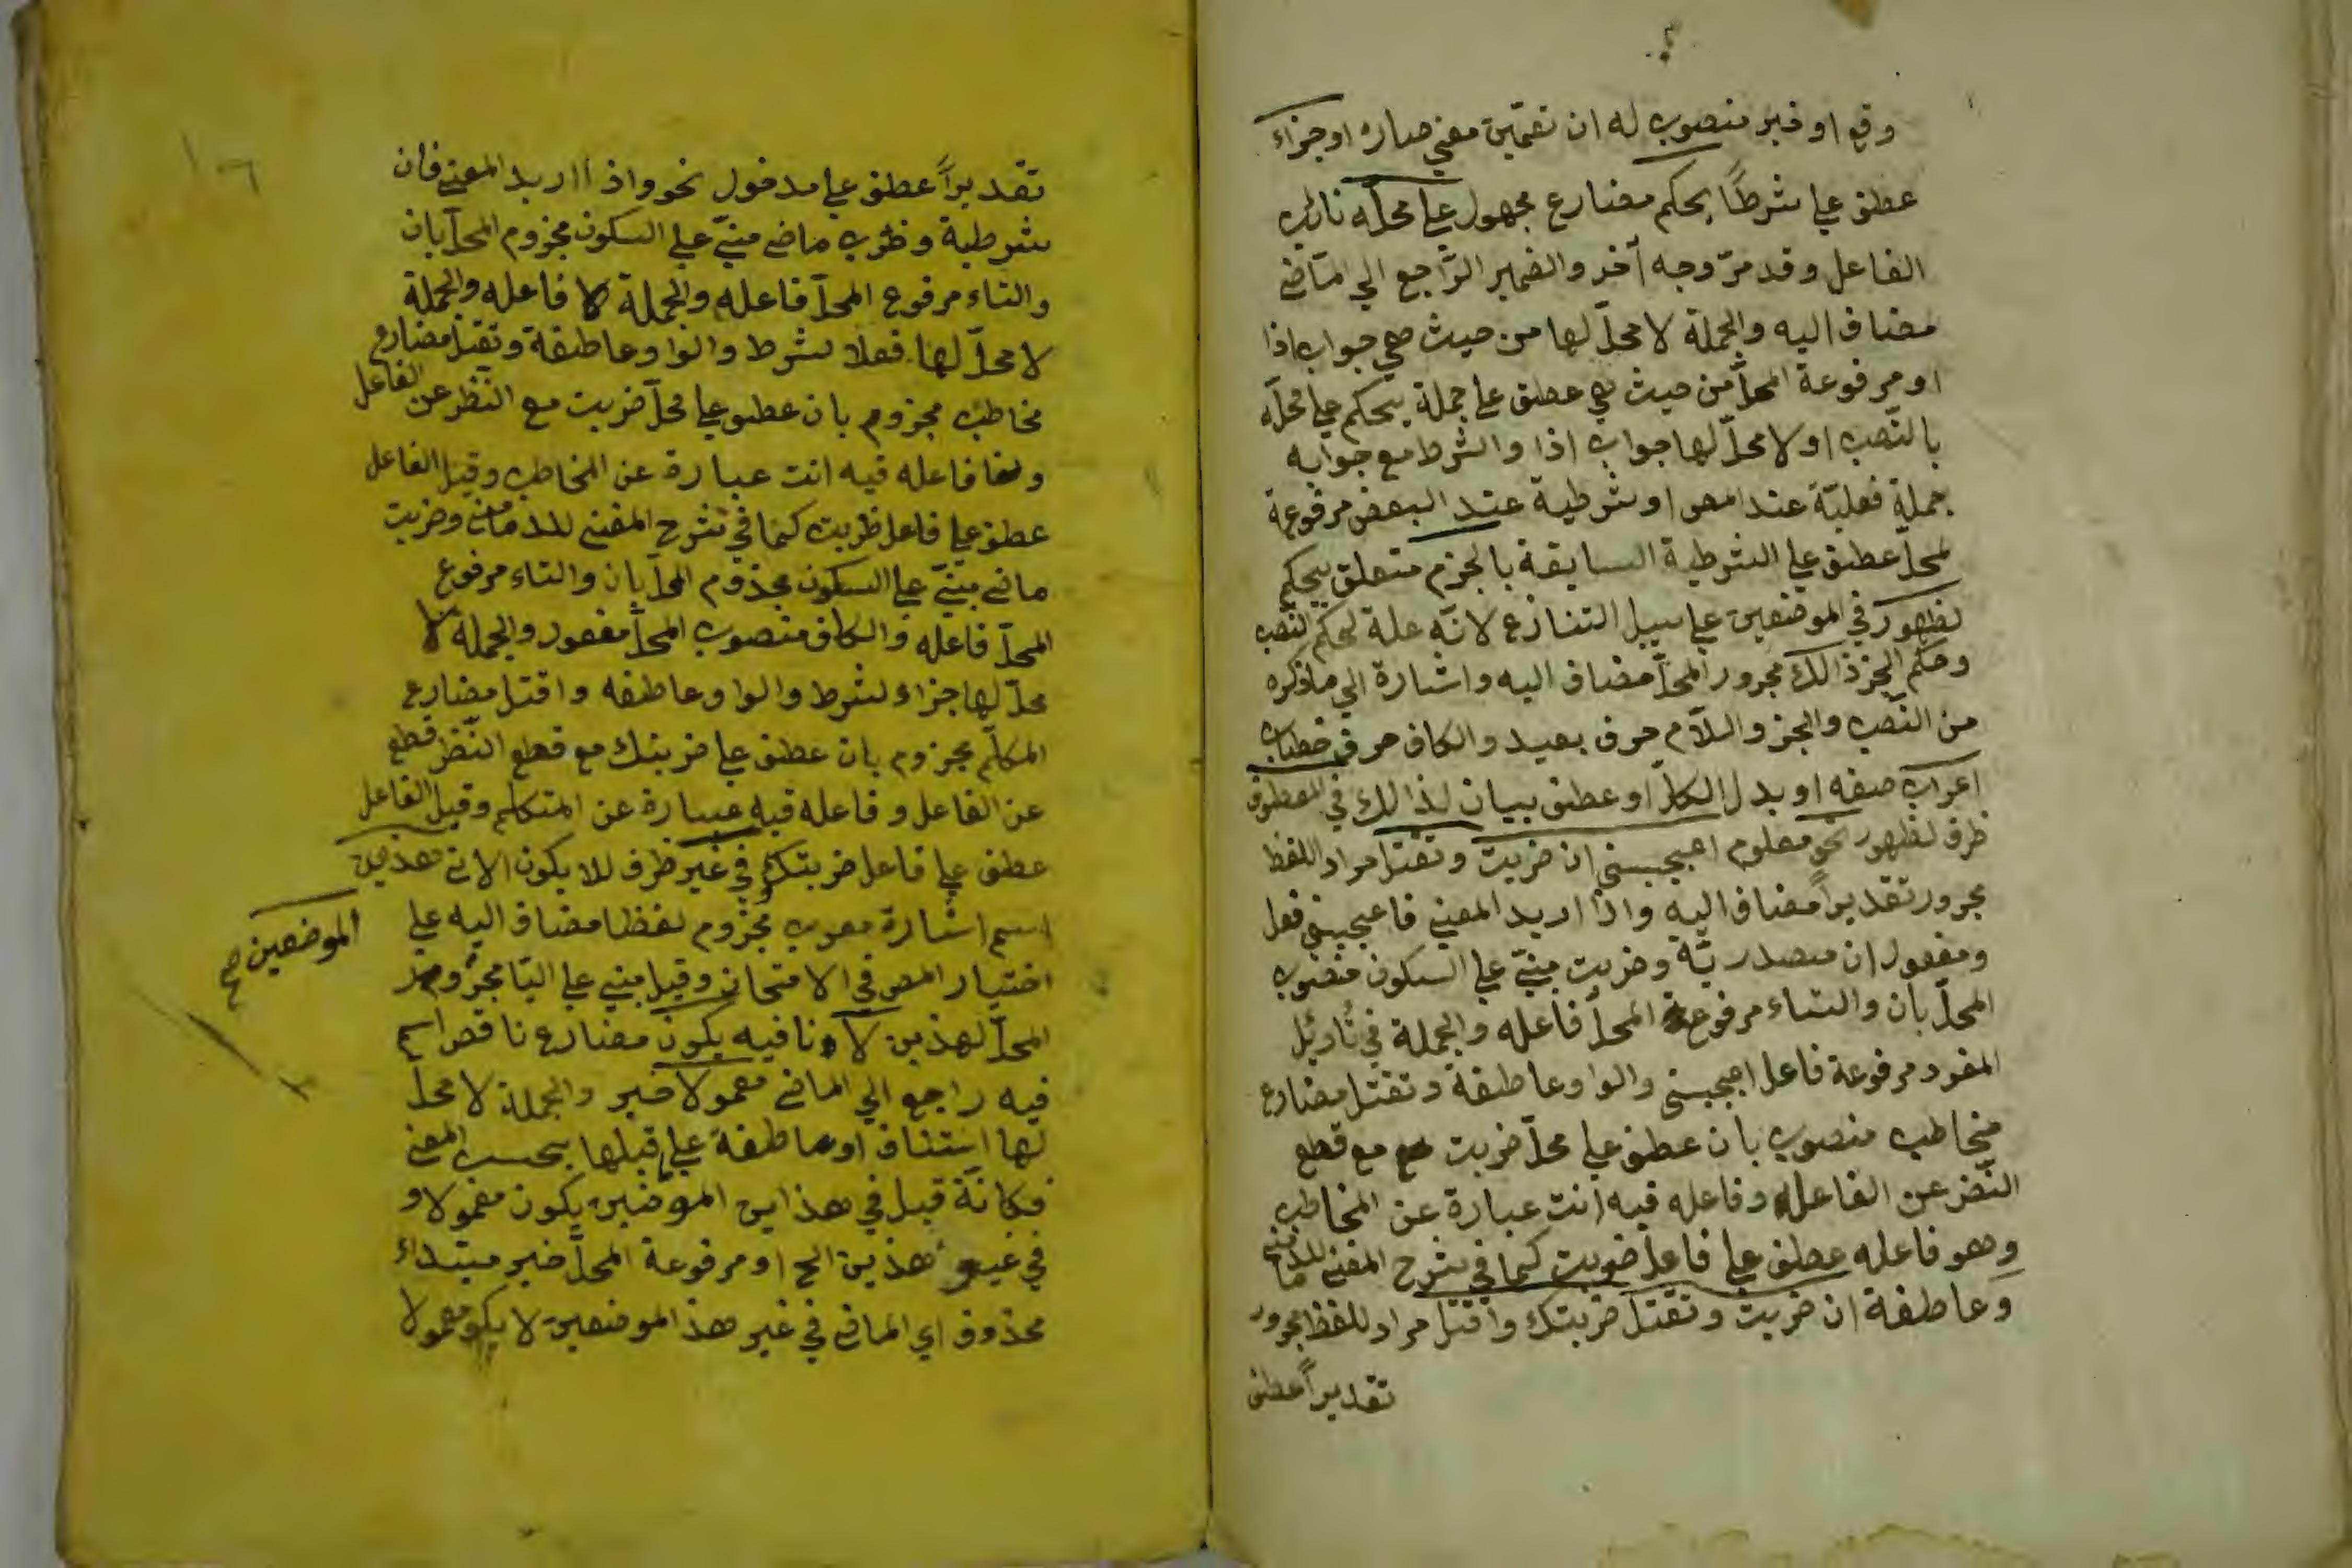 وقع او خبر منصوب له ان تضمين معنى صار او جزاء
عطف على شرطًا يحكم مضارع مجهول على محله نائب
الفاعل وقد مرّ وجه آخر والضمير الرّاجع الي الماضى
مضاف اليه والجملة لا محلّ لها من حيث هي جواب اذا
او مرفوعة المحلّ من حيث هي عطف على جملة يحكم على محلّه
بالنّصب او لا محلّ لها جواب اذا والشرط مع جوابه
جملة فعليّة عند المص او شرطية عند البعض مرفوعة
المحلّ عطف على الشرطية السابقة بالجزم متعلق يحكم
لظهور في الموضعين على سبيل التنازع لانّه علة لحكم النّصب
وحكم الجزم ذالك مجرور المحلّ مضاف اليه واشارة الي ما ذكره
من النّصب والجزم واللّام حرف بعيد والكاف حرف خطاب
اعراب صفه او بدل الكلّ او عطف بيان لذالك في المعطوف
ظرف لظهور نحو معلوم اعجبنى ان ضربت وتقتل مراد اللفظ
مجرور تقديراً مضاف اليه واذا اريد المعنى فاعجبنى فعل
ومفعول ان مصدريّة وضربت مبنيّ على السكون منصوب
المحلّ بان والتاء مرفوعة المحلّ فاعله والجملة في تأويل
المفرد مرفوعة فاعل اعجبنى والواو عاطفة وتقتل مضارع
مخاطب منصوب بان عطف على محلّ ضربت مع قطع
النّضر عن الفاعل وفاعله فيه انت عبارة عن المخاطب
وهو فاعله عطف على فاعل ضربت كما في شرح المغنى للدمامنى
وعاطفة ان ضربت وتقتل ضربتك واقتل مراد للفظ مجرور
تقديراً عطف
تقديراً عطف على مدخول نحو واذا اريد المعنى فان
شرطية وضرب ماضى مبنيّ على السكون مجزوم المحلّ بان
والتاء مرفوع المحلّ فاعله والجملة لا فاعله والجملة
لا محلّ لها فعلا لشرط والواو عاطفة وتقتل مضارع
مخاطب مجزوم بان عطف على محلّ ضربت مع النّظر عن الفاعل
فاعله فيه انت عبارة عن المخاطب وقيل الفاعل
عطف على فاعل ضربت كما في شرح المغنى للدمامنى وضربت
ماضى مبنيّ على السكون مجذوم المحلّ بان والتاء مرفوع
المحلّ فاعله والكاف منصوب المحلّ مفعول والجملة لا
محلّ لها جزاء لشرط والواو عاطفه واقتل مضارع
المتكلّم مجزوم بان عطف على ضربتك مع قطع النّظر قطع
عن الفاعل وفاعله فيه عبارة عن المتكلم وقيل الفاعل
عطف على فاعل ضربتك في غير ظرف للا يكون الاتى هذين
اسم اشارة معرب مجزوم لفظا مضاف اليه على
الموضعين صح
اختيار المص في الامتحان وقيل مبني على اليا مجرور
المحلّ لهذين لا نافيه يكون مضارع ناقص اسم
فيه راجع الي الماضى معمولا خبر والجملة لا محلّ
لها استئناف او عاطفة على قبلها بحسب المعنى
فكانّة قيل في هذاين الموضعين يكون معمولا و
في غير هذين الخ او مرفوعة المحلّ خبر مبتداء
محذوف اي الماضى في غير هذ الموضعين لا يكو معمولا